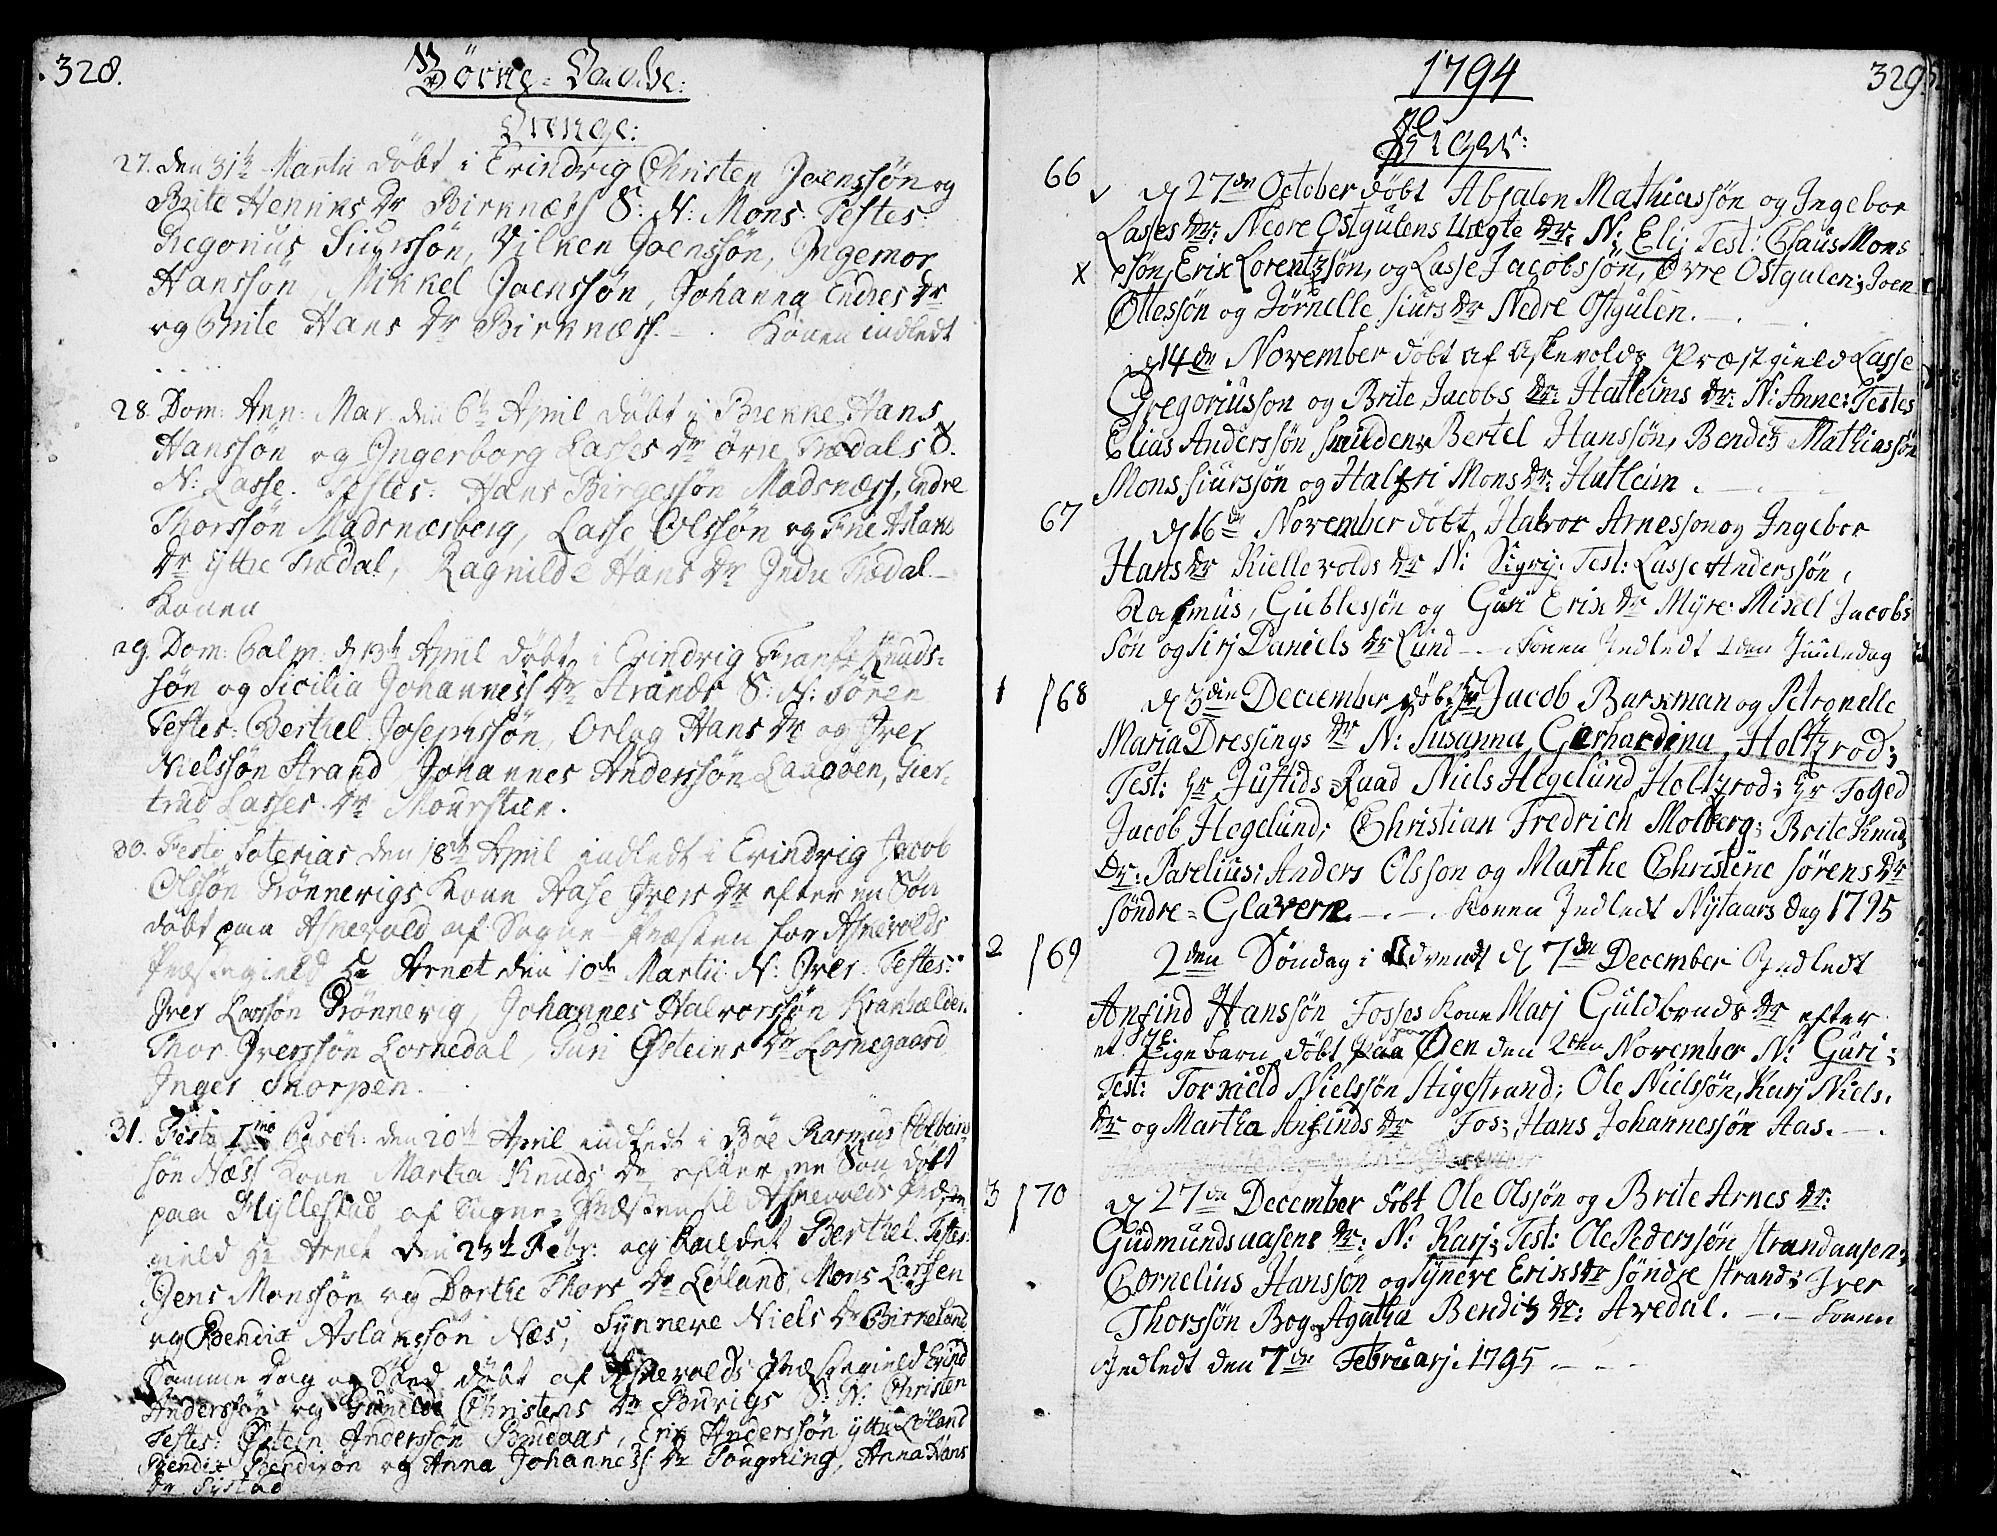 328.
Børne-Daabe:
Drenge:
27. den 31te Martii døbt i Evindvig Christen Joenssøn og
Brite Henriks Dr Birknæss S: N: Mons: Testes:
Gregorius Siurssøn, Vilken Joenssøn, Ingemor
Hanssøn, Mikkel Joenssøn, Johanna Endres Dr
og Brite Hans Dr Birknæss. – Konen indledt
28. Dom: Ann: Mar. den 6te April døbt i Brekke Hans
Hanssøn og Ingerborg Lasses Dr øvre Trædals S.
N: Lasse. Testes: Hans Birgessøn Madsnæss, Endre
Thorssøn Madsnæsberg, Lasse Olssøn og Aslaks
Dr yttre Trædal, Ragnilde Hans Dr Indre Trædal. –
Konen
29. Dom: Palm: d 13te April døbt i Evindvig Frants Knuds-
søn og Sicilia Johanness Dr Strands S: N: Søren
Testes: Berthel Josephssøn, Orlog Hans Dr og Iver
Nielssøn Strand, Johannes Anderssøn Laagøen, Gier-
trud Lasses Dr Mourstæn.
30. Festo Soterias den 18de April indledt i Evindvig Jacob
Olssøn Rønnevigs Kone Aase Ivers Dr efter en Søn
døbt paa Askevold af Sogne-Præsten for Askevolds
Præstegield Hr Arnet den 10de Martii N: Iver. Testes:
Iver Larssøn Rønnevig, Johannes Halvorssøn Krakhælden
Thor Iverssøn Lornedal, Guri Østeins Dr Lornegaard
Inger Skorpen.
31. Festo 1mo Pasch: den 20de April indledt i Bøe Rasmus Colbens-
søn Næss Kone Martha Knuds Dr efter en Søn døbt
paa Hyllestad af Sogne-Præsten til Askevolds Præste-
gield Hr Arnet den 23de Febr: og kaldet Berthel. Testes:
Jens Monssøn og Dorthe Thors Dr Løland, Mons Larssen
og Bendix Aslakssøn Næs, Synneve Niels Dr Birkeland
Samme Dag og Sted døbt af Askevolds Præstegield Erind
Anderssøn og Gunilde Christens Dr Buvigs S: N: Christen
Testes: Østein Anderssøn Bredaas, Erik Anderssøn yttre Løland
Bendix Bendixøn og Anna Johanness Dr Sougning, Anna Hans
Dr Systad
1794
329.
Piger:
66 d 27de October døbt Absalon Mathiessøn og Ingebor
Lasses Dr: Nedre Ostgulens Uægte Dr: N: Eli; Test: Claus Mons
x søn, Erik Lorentzsøn, og Lasse Jacobssøn, Øvre Ostgulen; Joen
Ottessøn og Jørnelle Siurs Dr Nedre Ostgulen. –
d 14de November døbt af Askevolds Præstgield Lasse
Gregoriusson og Brite Jacobs Dr: Hatleims Dr: N: Anne: Testes
Elias Anderssøn Smilden, Bertel Hanssøn, Bendix Mathiassøn
Mons Siurssøn og Halfri Mons Dr: Hatleim. –
67 d 16de November døbt Halvor Arnesson og Ingebor
Hans Dr Kiellevolds Dr N: Sigrj: Test: Lasse Anderssøn,
Rasmus Giæblesøn og Guri Erik Dr Myre: Mikel Jacobs
søn og Sirj Daniels Dr Lund – Konen Indledt 1den Juuledag
1 / 68 d 3die December døbt Hr Jacob Barkman og Petronelle
Maria Dressings Dr N: Susanna Gerhardina Holtzrod;
Test: Hr Justids Raad Niels Hegelund Holtzrod; Hr Foged
Jacob Hegelund; Christian Fredrich Molberg; Brite Knuds
Dr: Parelius; Anders Olsson og Marthe Christine Sørens Dr
Søndre-Glavern. – Konen Indledt Nytaars Dag 1795
2 / 69 2den Søndag i Advendt d 7de December Indledt
Anfind Hanssøn Fosses Kone Marj Guldbrands Dr efter
et Pigebarn døbt paa Øen den 2den November N: Guri;
Test: Torkield Nielssøn Stigestrand; Ole Nielssøn, Karj Niels.
Dr og Martha Anfinds Dr Fos; Hans Johannessøn Aas. –
3 / 70 d 27de December døbt Ole Olssøn og Brite Arnes Dr:
Gudmundsaasens Dr: N: Karj; Test: Ole Pederssøn Strandaasen;
Cornelius Hanssøn og Syneve Eriks Dr Søndre Strand; Iver
Thorssøn Bog, Agatha Bendix Dr: Avedal. – Konen
Indledt den 7de Februarj 1795 –